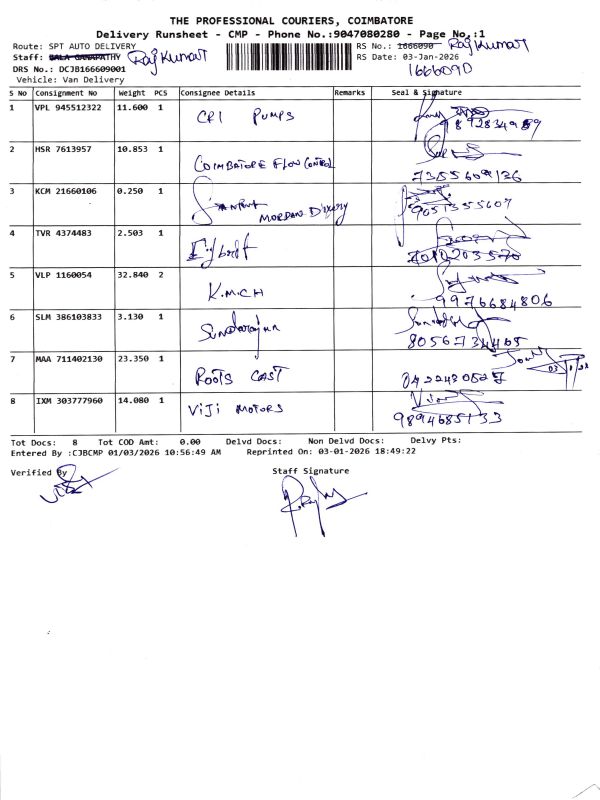 THE PROFESSIONAL COURIERS, COIMBATORE
Delivery Runsheet - CMP - Phone No.:9047080280 - Page No.:1
Route: SPT AUTO DELIVERY
RS No.: 1666090 Raj Kumar
Staff: BALA GANAPATHY Raj Kumar
RS Date: 03-Jan-2026
1666090
DRS No.: DCJB166609001
Vehicle: Van Delivery
S No Consignment No Weight PCS Consignee Details Remarks Seal & Signature
1 VPL 945512322 11.600 1 CRI PUMPS
2 HSR 7613957 10.853 1 COIMBATORE FLOW CONTROL 7355609126
3 KCM 21660106 0.250 1 MORDAN 9051355607
4 TVR 4374483 2.503 1
5 VLP 1160054 32.840 2 K.M.C.H 9976684806
6 SLM 386103833 3.130 1 Sundarajan 8056734465
7 MAA 711402130 23.350 1 ROOTS CAST
8 IXM 303777960 14.080 1 VIJI MOTORS 9894685133
Tot Docs: 8 Tot COD Amt: 0.00 Delvd Docs: Non Delvd Docs: Delvy Pts:
Entered By :CJBCMP 01/03/2026 10:56:49 AM Reprinted On: 03-01-2026 18:49:22
Verified By
Staff Signature